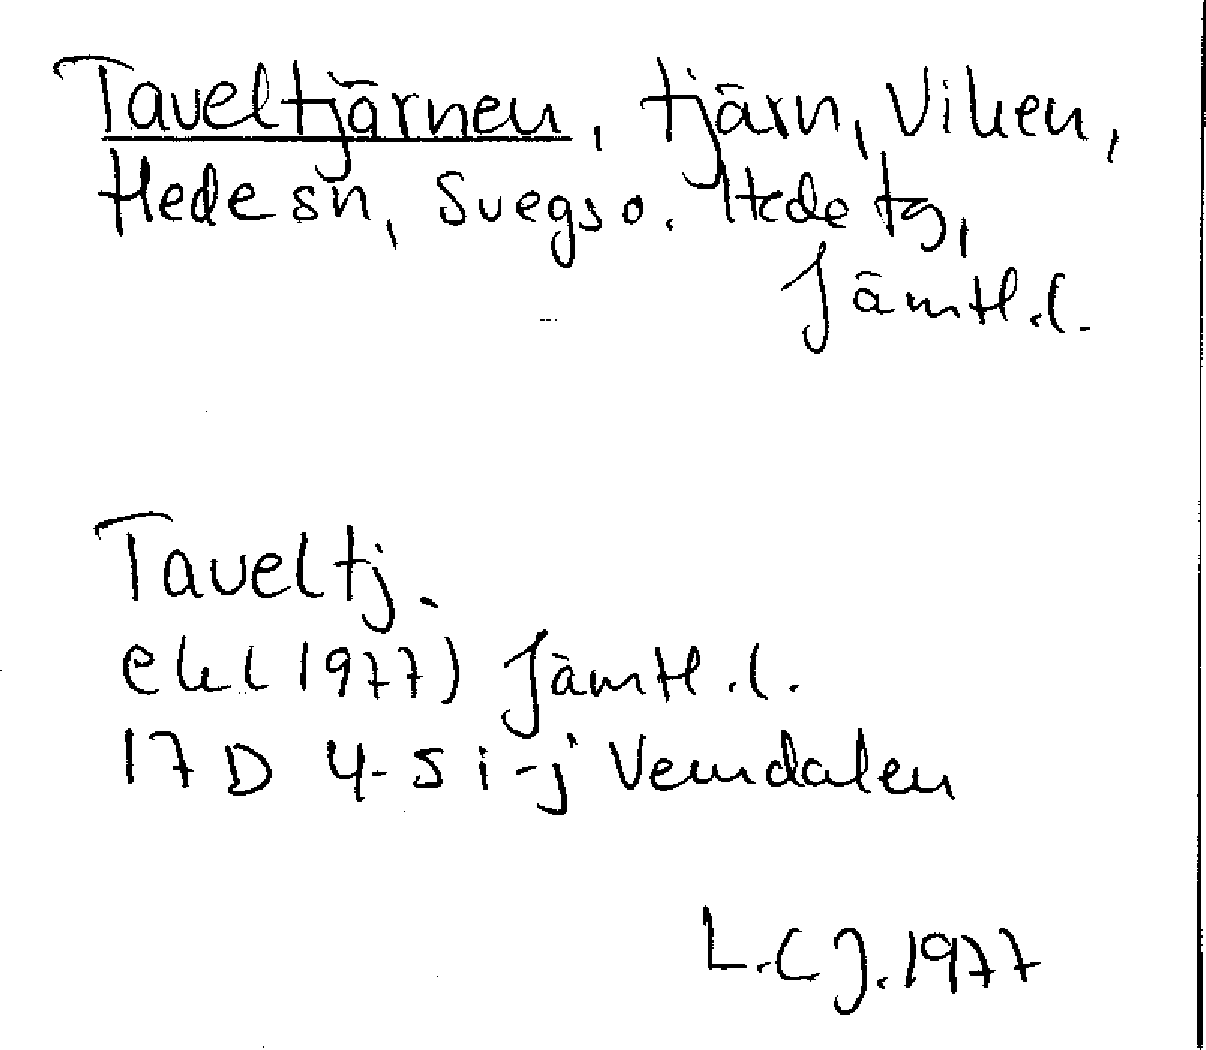 Taveltjärnen, tjärn, Viken,
Hede sn, Svegs o. Hede tg,
Jämtl.l.
Taveltj.
ekl (1977) Jämtl.l.
17 D 4-5 i-j Vemdalen
L.C J. 1977